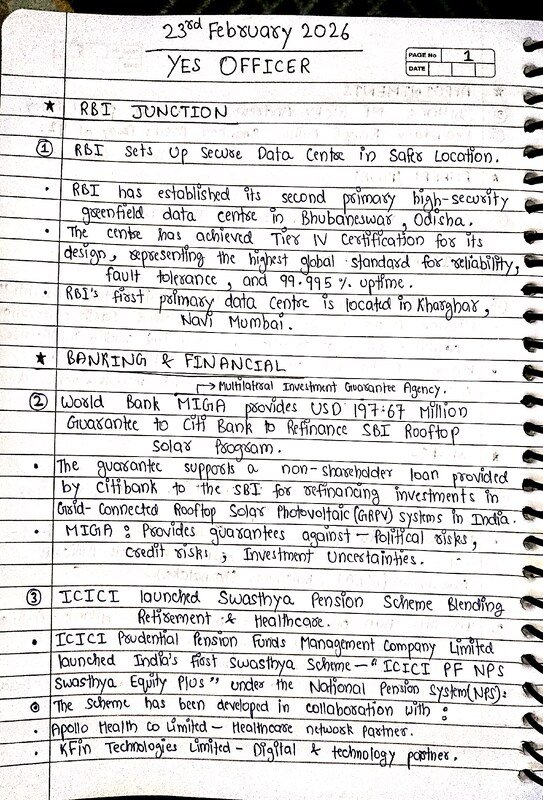 23rd February 2026
YES OFFICER
PAGE No 1
DATE
★ RBI JUNCTION
① RBI sets up secure Data Centre in Safer Location.
• RBI has established its second primary high-security
greenfield data centre in Bhubaneswar, Odisha.
• The centre has achieved Tier IV Certification for its
design, representing the highest global standard for reliability,
fault tolerance, and 99.995 % uptime.
• RBI's first primary data centre is located in Kharghar,
Navi Mumbai.
★ BANKING & FINANCIAL
→ Multilateral Investment Guarantee Agency.
② World Bank MIGA provides USD 197.67 Million
Guarantee to Citi Bank to Refinance SBI Rooftop
Solar Program.
• The guarantee supports a non-shareholder loan provided
by Citibank to the SBI for refinancing investments in
Grid-Connected Rooftop Solar Photovoltaic (GRPV) systems in India.
• MIGA : Provides guarantees against - Political risks,
Credit risks, Investment Uncertainties.
③ ICICI launched Swasthya Pension Scheme Blending
Retirement & Healthcare.
• ICICI Prudential Pension Funds Management Company Limited
launched India's first Swasthya Scheme - "ICICI PF NPS
Swasthya Equity Plus" under the National Pension System (NPS).
⊙ The scheme has been developed in collaboration with :
• Apollo Health Co Limited - Healthcare network partner.
• KFin Technologies Limited - Digital & technology partner.